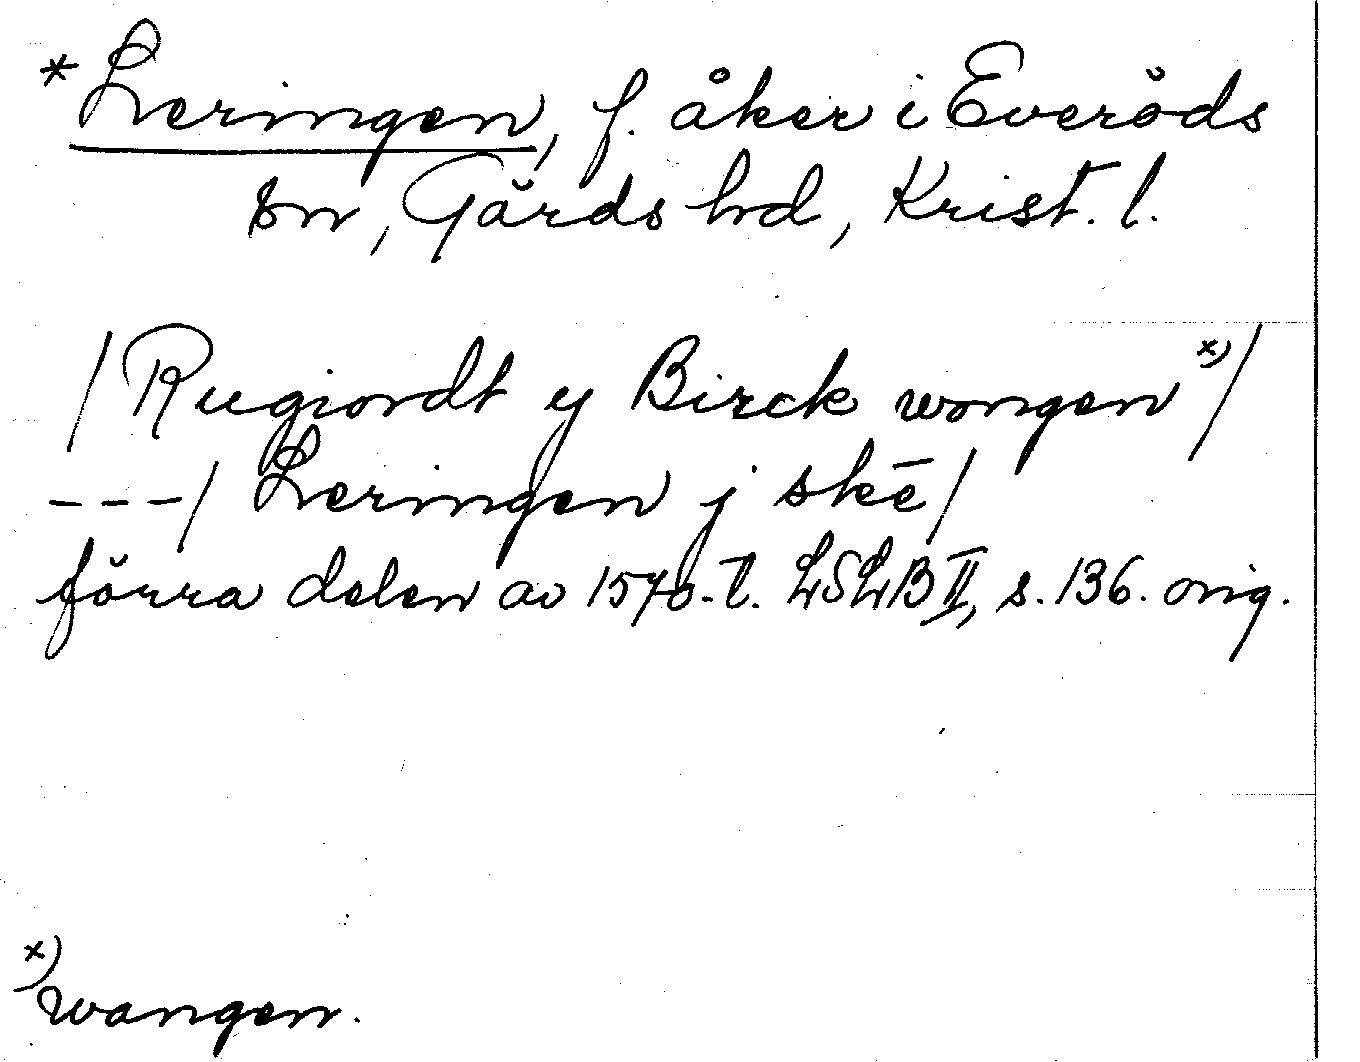 *Leringen, f. åker i Everöds
sn, Gärds hd, Krist. l.
/Rugiordt y Birck wongen x)/
---/ Leringen j skē/
förra delen av 1570-t. LSLB II, s. 136. orig.
x) wangen.